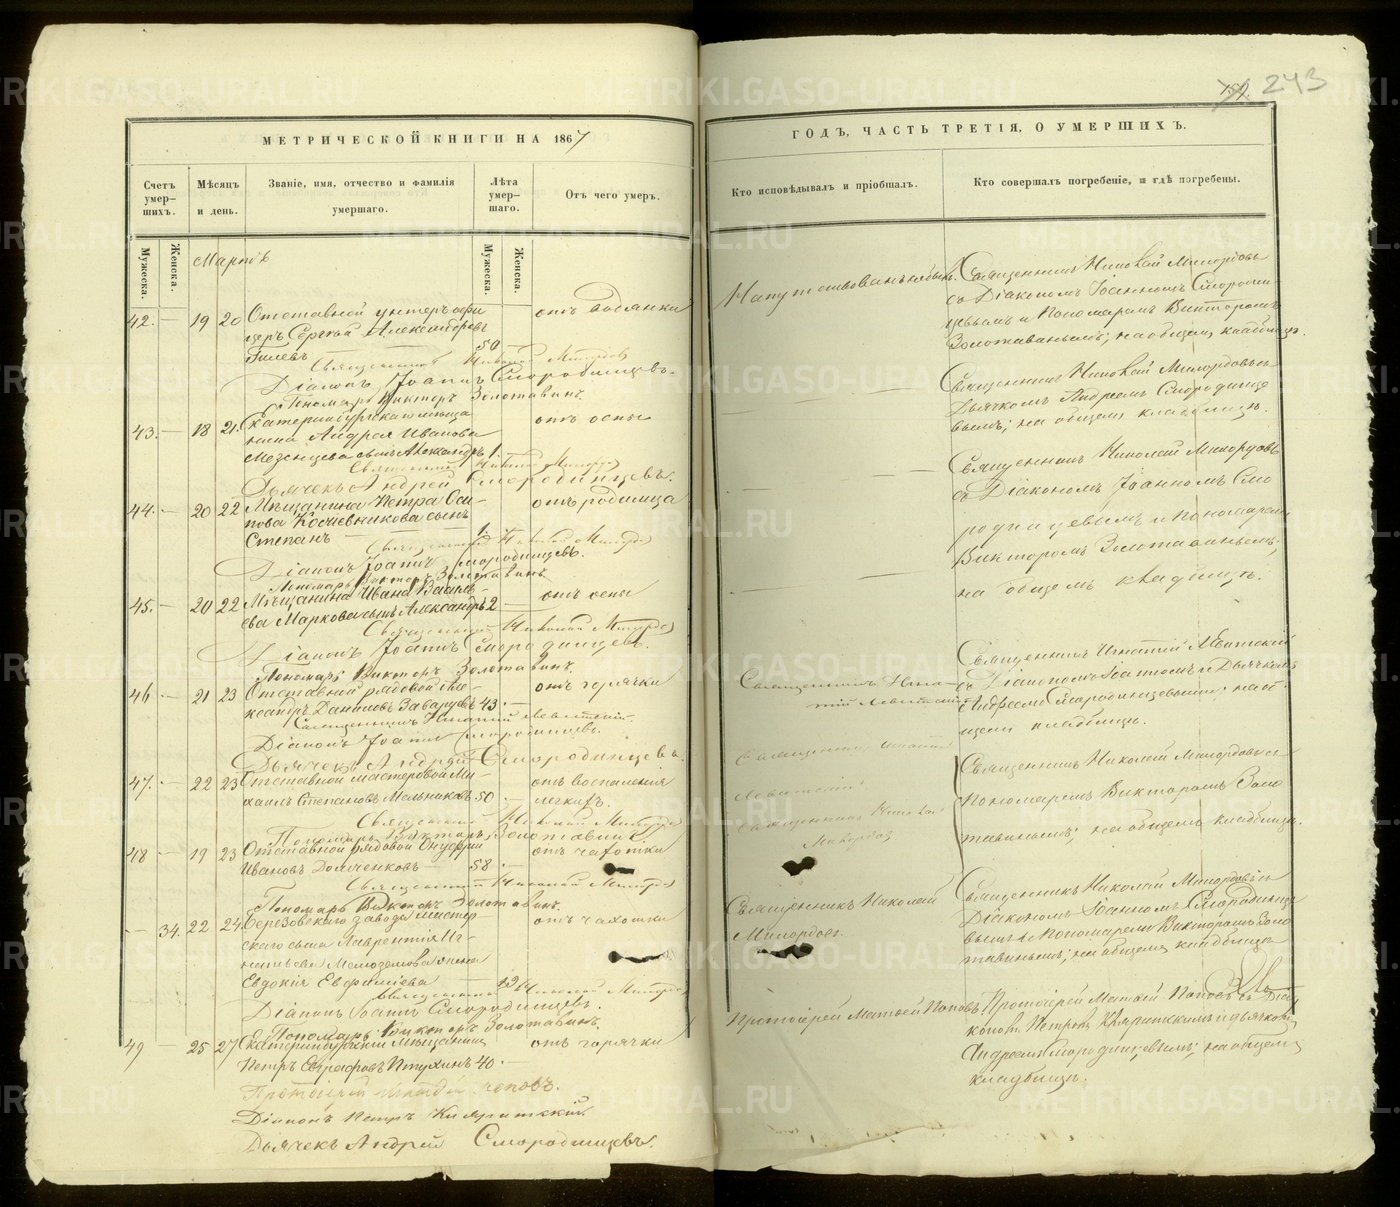 МЕТРИЧЕСКОЙ КНИГИ НА 1867
Счетъ умер-шихъ.
Мѣсяцъ и день.
Званіе, имя, отчество и фамилія умершаго.
Лѣта умер-шаго.
Отъ чего умеръ.
Мужеска.
Женска.
Мужеска.
Женска.
Мартъ
42. — 19 20 Отставной унтеръ офи
церъ Сергѣй Александровъ
Гилевъ 50 —
отъ водянки
Священникъ Николай Милордовъ
Діаконъ Іоаннъ Смородинцевъ.
Пономарь Викторъ Золотавинъ.
43. — 18 21. Екатеринбургскаго мѣща
нина Андрея Иванова
Мезенцева сынъ Александръ 1.
отъ оспы
Священникъ Николай Милордовъ
Дьячекъ Андрей Смородинцевъ.
44. — 20 22 Мѣщанина Петра Оси-
пова Кочевникова сынъ
Степанъ 1.
отъ родимца
Священникъ Николай Милордовъ
Діаконъ Іоаннъ Смородинцевъ.
Пономарь Викторъ Золотавинъ
45. — 20 22 Мѣщанина Ивана Василь-
ева Маркова сынъ Александръ 2 —
отъ оспы
Священникъ Николай Милордовъ
Діаконъ Іоаннъ Смородинцевъ.
Пономарь Викторъ Золотавинъ.
46 — 21 23 Отставной рядовой Але-
ксандръ Даниловъ 43. —
отъ горячки
Священникъ Игнатій Левитскій
Діаконъ Іоаннъ Смородинцевъ.
Дьячекъ Андрей Смородинцевъ.
47. — 22 23 Отставной мастеровой Ми-
хаилъ Степановъ Мельниковъ 50 —
отъ воспаленія
легкихъ.
Священникъ Николай Милордовъ
Пономарь Викторъ Золотавинъ
48 — 19 23 Отставной рядовой
Ивановъ Домченковъ — 58. —
отъ чахотки
Священникъ Николай Милордовъ
Пономарь Викторъ Золотавинъ.
— 34. 22 24. Березовскаго завода мастер-
скаго сына Лаврентія Иг-
натьева жена
Евдокія Евфиміева —
отъ чахотки
Священникъ Николай Милордовъ
Діаконъ Іоаннъ Смородинцевъ.
Пономарь Викторъ Золотавинъ,
49 — 25 27 Екатеринбургскій мѣщанинъ
Петръ Евграфовъ Птухинъ 40. —
отъ горячки
Протоіерей Матѳій Поповъ.
Діаконъ Петръ
Дьячекъ Андрей Смородинцевъ.
243
ГОДЪ, ЧАСТЬ ТРЕТІЯ, О УМЕРШИХЪ.
Кто исповѣдывалъ и пріобщалъ.
Кто совершалъ погребеніе, и гдѣ погребены.
Священникъ Николай Милордовъ
съ Діакономъ Іоанномъ Смородин
цевымъ и Пономаремъ Викторомъ
Золотавинымъ; на общемъ кладбищѣ.
Священникъ Николай Милордовъ съ
Дьячкомъ Андреемъ Смородинце
вымъ; на общемъ кладбищѣ.
Священникъ Николай Милордовъ
съ Діакономъ Іоанномъ Смо
родинцевымъ и Пономаремъ
Викторомъ Золотавинымъ;
на общемъ кладбищѣ.
Священникъ Игна-
тій Левитскій
Священникъ Игнатій Левитскій
съ Діакономъ Іоанномъ и Дьячкомъ
Андреемъ Смородинцевыми; на об-
щемъ кладбищѣ.
Священникъ Игнатій
Левитскій
Священникъ Николай Милордовъ съ
Пономаремъ Викторомъ Золо
тавинымъ; на общемъ кладбищѣ.
Священникъ Никола
Милордовъ
Священникъ Николай
Милордовъ.
Священникъ Николай Милордовъ съ
Діакономъ Іоанномъ Смородинце
вымъ и Пономаремъ Викторомъ Золо
тавинымъ; на общемъ кладбищѣ
Протоіерей Матѳей Поповъ
Протоіерей Матѳій Поповъ съ Діа
кономъ Петромъ и дьячкомъ
Андреемъ Смородинцевымъ; на общемъ
кладбищѣ.
METRIKI.GASO-URAL.RU